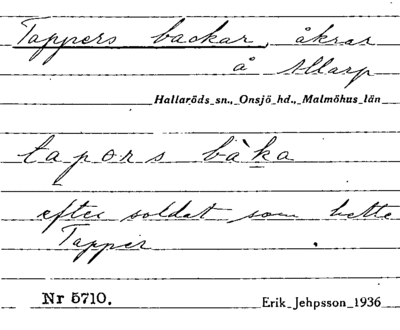 Tappers backar, åkrar
å Allarp
Hallaröds sn., Onsjö hd., Malmöhus län
tapors bàka
efter soldat som hette
Tapper
Nr 5710.
Erik Jehpsson 1936